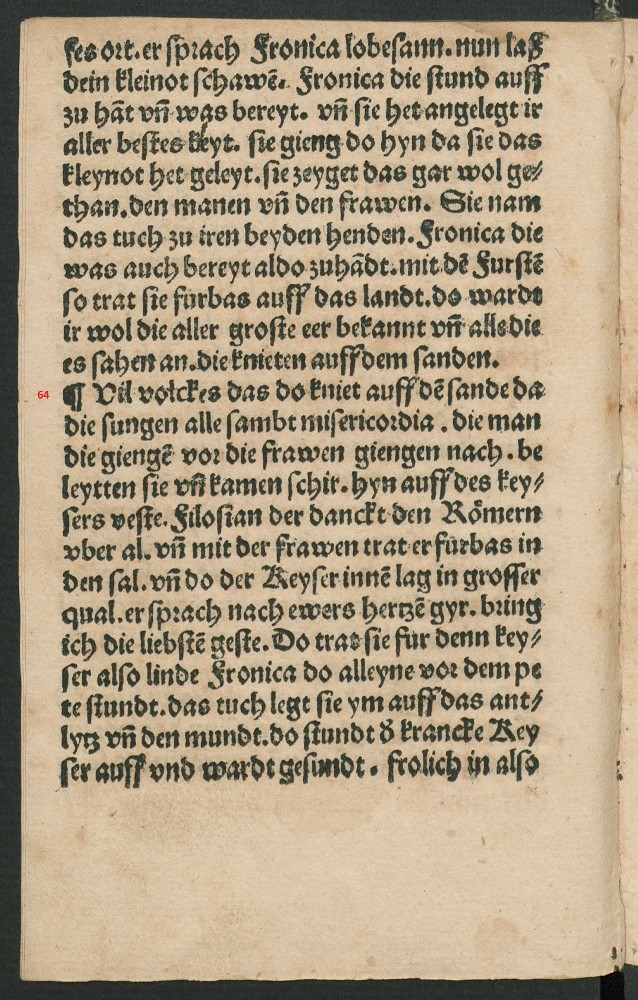 ses ort. er sprach Fronica lobesann. nun laß
dein kleinot schawē. Fronica die stund auff
zu hāt vñ was bereyt. vñ sie het angelegt ir
aller bestes kleyt. sie gieng do hyn da sie das
kleynot het geleyt. sie zeyget das gar wol ge⸗
than. den manen vñ den frawen. Sie nam
das tuch zu iren beyden henden. Fronica die
was auch bereyt aldo zuhādt. mit dē Furstē
so trat sie furbas auff das landt. do wardt
ir wol die aller groste eer bekannt vñ alle die
es sahen an. die knieten auff dem sanden.
64 ¶ Vil volckes das do kniet auff dē sande da
die sungen alle sambt misericordia . die man
die giengē vor die frawen giengen nach . be
leytten sie vñ kamen schir. hyn auff des key⸗
sers veste. Filosian der danckt den Römern
vber al. vñ mit der frawen trat er furbas in
den sal. vñ do der Keyser innē lag in grosser
qual. er sprach nach ewers hertzē gyr. bring
ich die liebstē geste. Do trat sie fur denn key⸗
ser also linde Fronica do alleyne vor dem pe
te stundt. das tuch legt sie ym auff das ant⸗
lytz vñ den mundt. do stundt d̕ krancke Key
ser auff vnd wardt gesundt . frolich in also